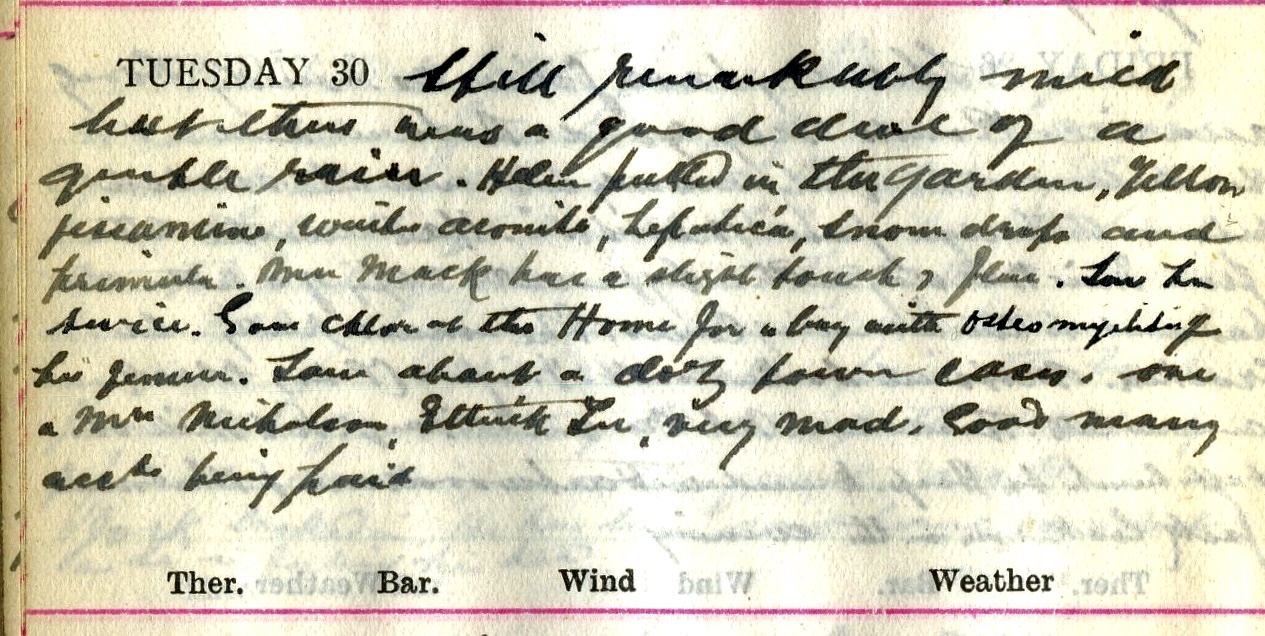 TUESDAY 30 Still remarkably mild
but there was a good deal of a
gentle rain. Helen pulled in the garden, Yellow
jessamine, winter aconite, hepatica, snow drops and
primula. Mrs Mack has a slight touch of flu. Saw her
twice. Gave chlor at the Home for a boy with osteomyelitis of
his femur. Saw about a doz town cases. one
a Mrs Nicholson, Ettrick Ter, very mad. Good many
accts being paid
Ther. Bar. Wind Weather